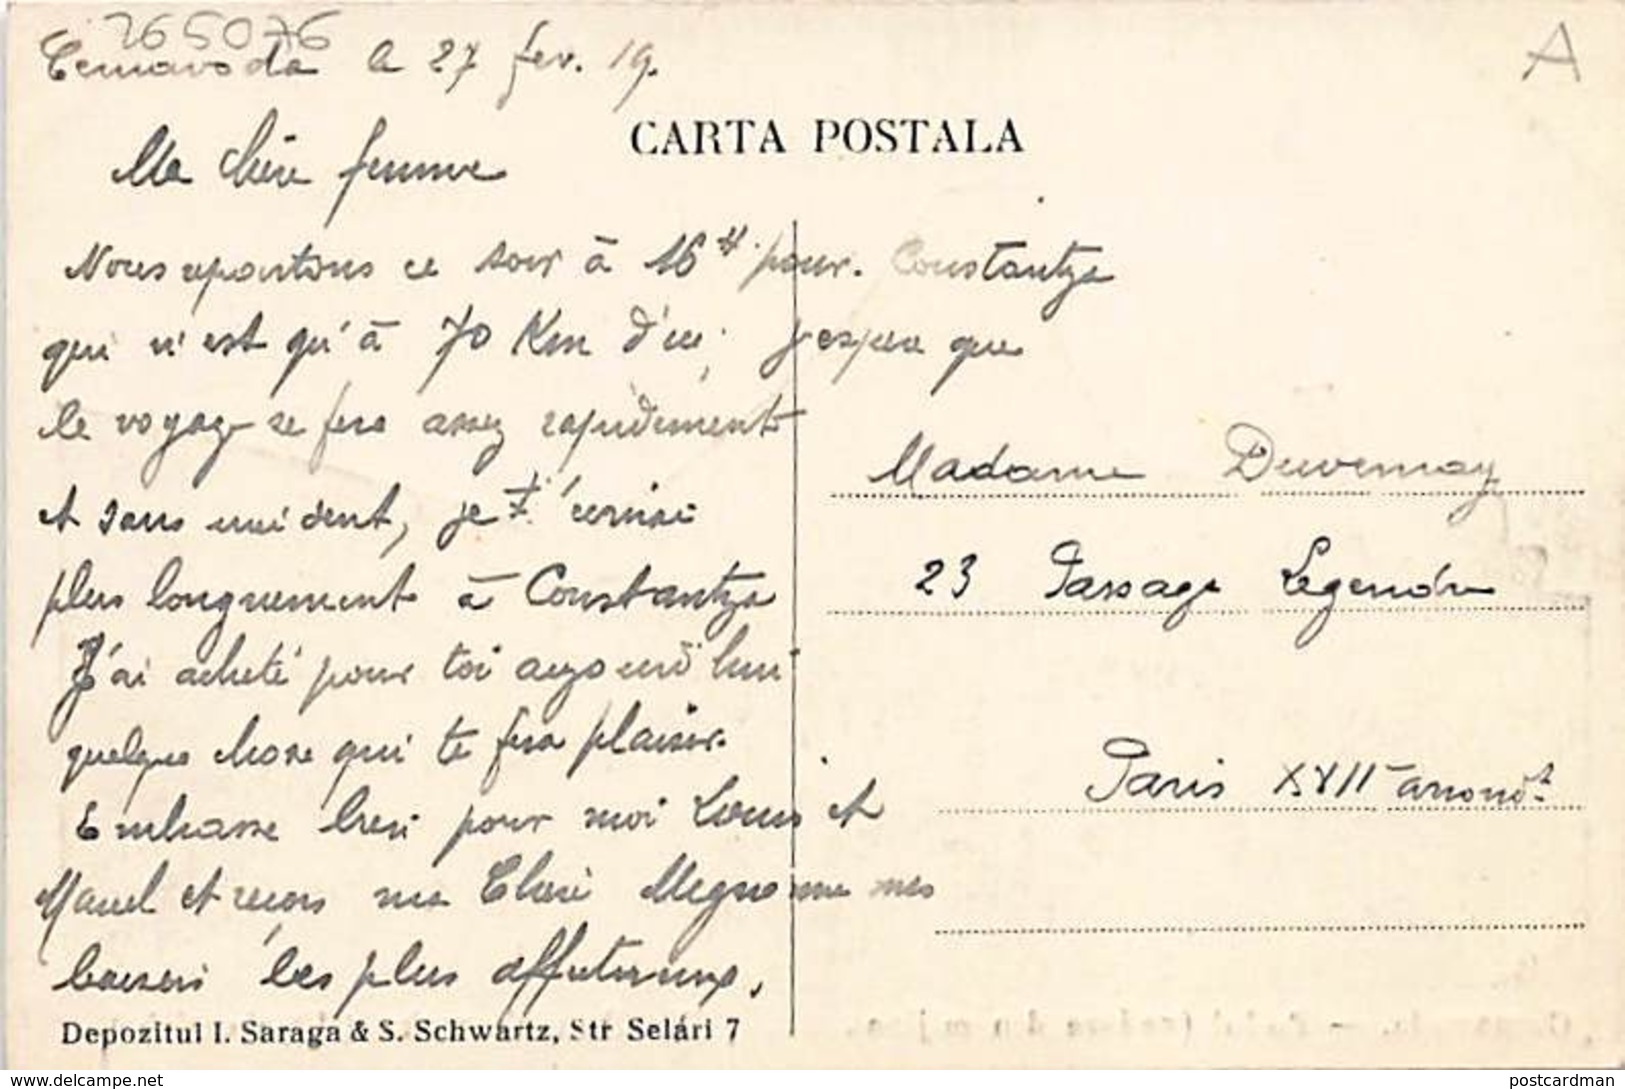 265076
A
Cernavoda le 27 fev. 19.
CARTA POSTALA
Ma chère femme
Nous repartons ce soir à 16H pour Constantza
qui n'est qu'à 70 Km d'ici, j'espère que
le voyage se fera assez rapidement
et sans incident, je t'écrirai
plus longuement à Constantza
J'ai acheté pour toi aujourd'hui
quelque chose qui te fera plaisir.
Embrasse bien pour moi Louis et
Marcel et reçois ma Chérie Mignonne mes
baisers les plus affectueux,
Madame Duvernay
23 Passage Legendre
Paris XVIIe arrondt.
Depozitul I. Saraga & S. Schwartz, Str Selári 7
delcampe.net
postcardman